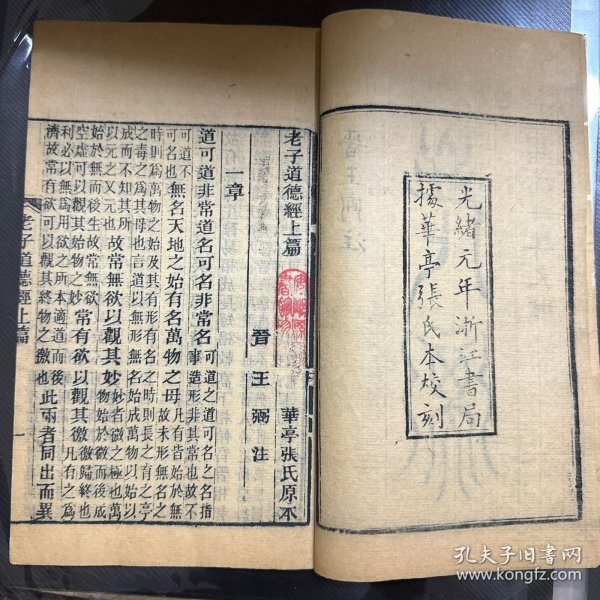 光緒元年浙江書局
據華亭張氏本校刻
老子道德經上篇
華亭張氏原本
晉王弼注
一章
道可道非常道名可名非常名
可道之道可名之名指
事造形非其常也故不
可道不
可名也
無名天地之始有名萬物之母
凡有皆始於無
故未形無名之
時則為萬物之始及其有形有名之時則長之育之亭
之毒之為其母也言道以無形無名始成萬物以始以
成而不知其所
以元之又元也
故常無欲以觀其妙
妙者微之極也萬
物始於微而後成
始於無而後生故常無欲
空虛可以觀其始物之妙
常有欲以觀其徼
徼歸終也
凡有之為
利必以無為用欲之所本適道而後
濟故常有欲可以觀其終物之徼也
此兩者同出而異
老子道德經上篇
一
孔夫子旧书网
www.kongfz.com